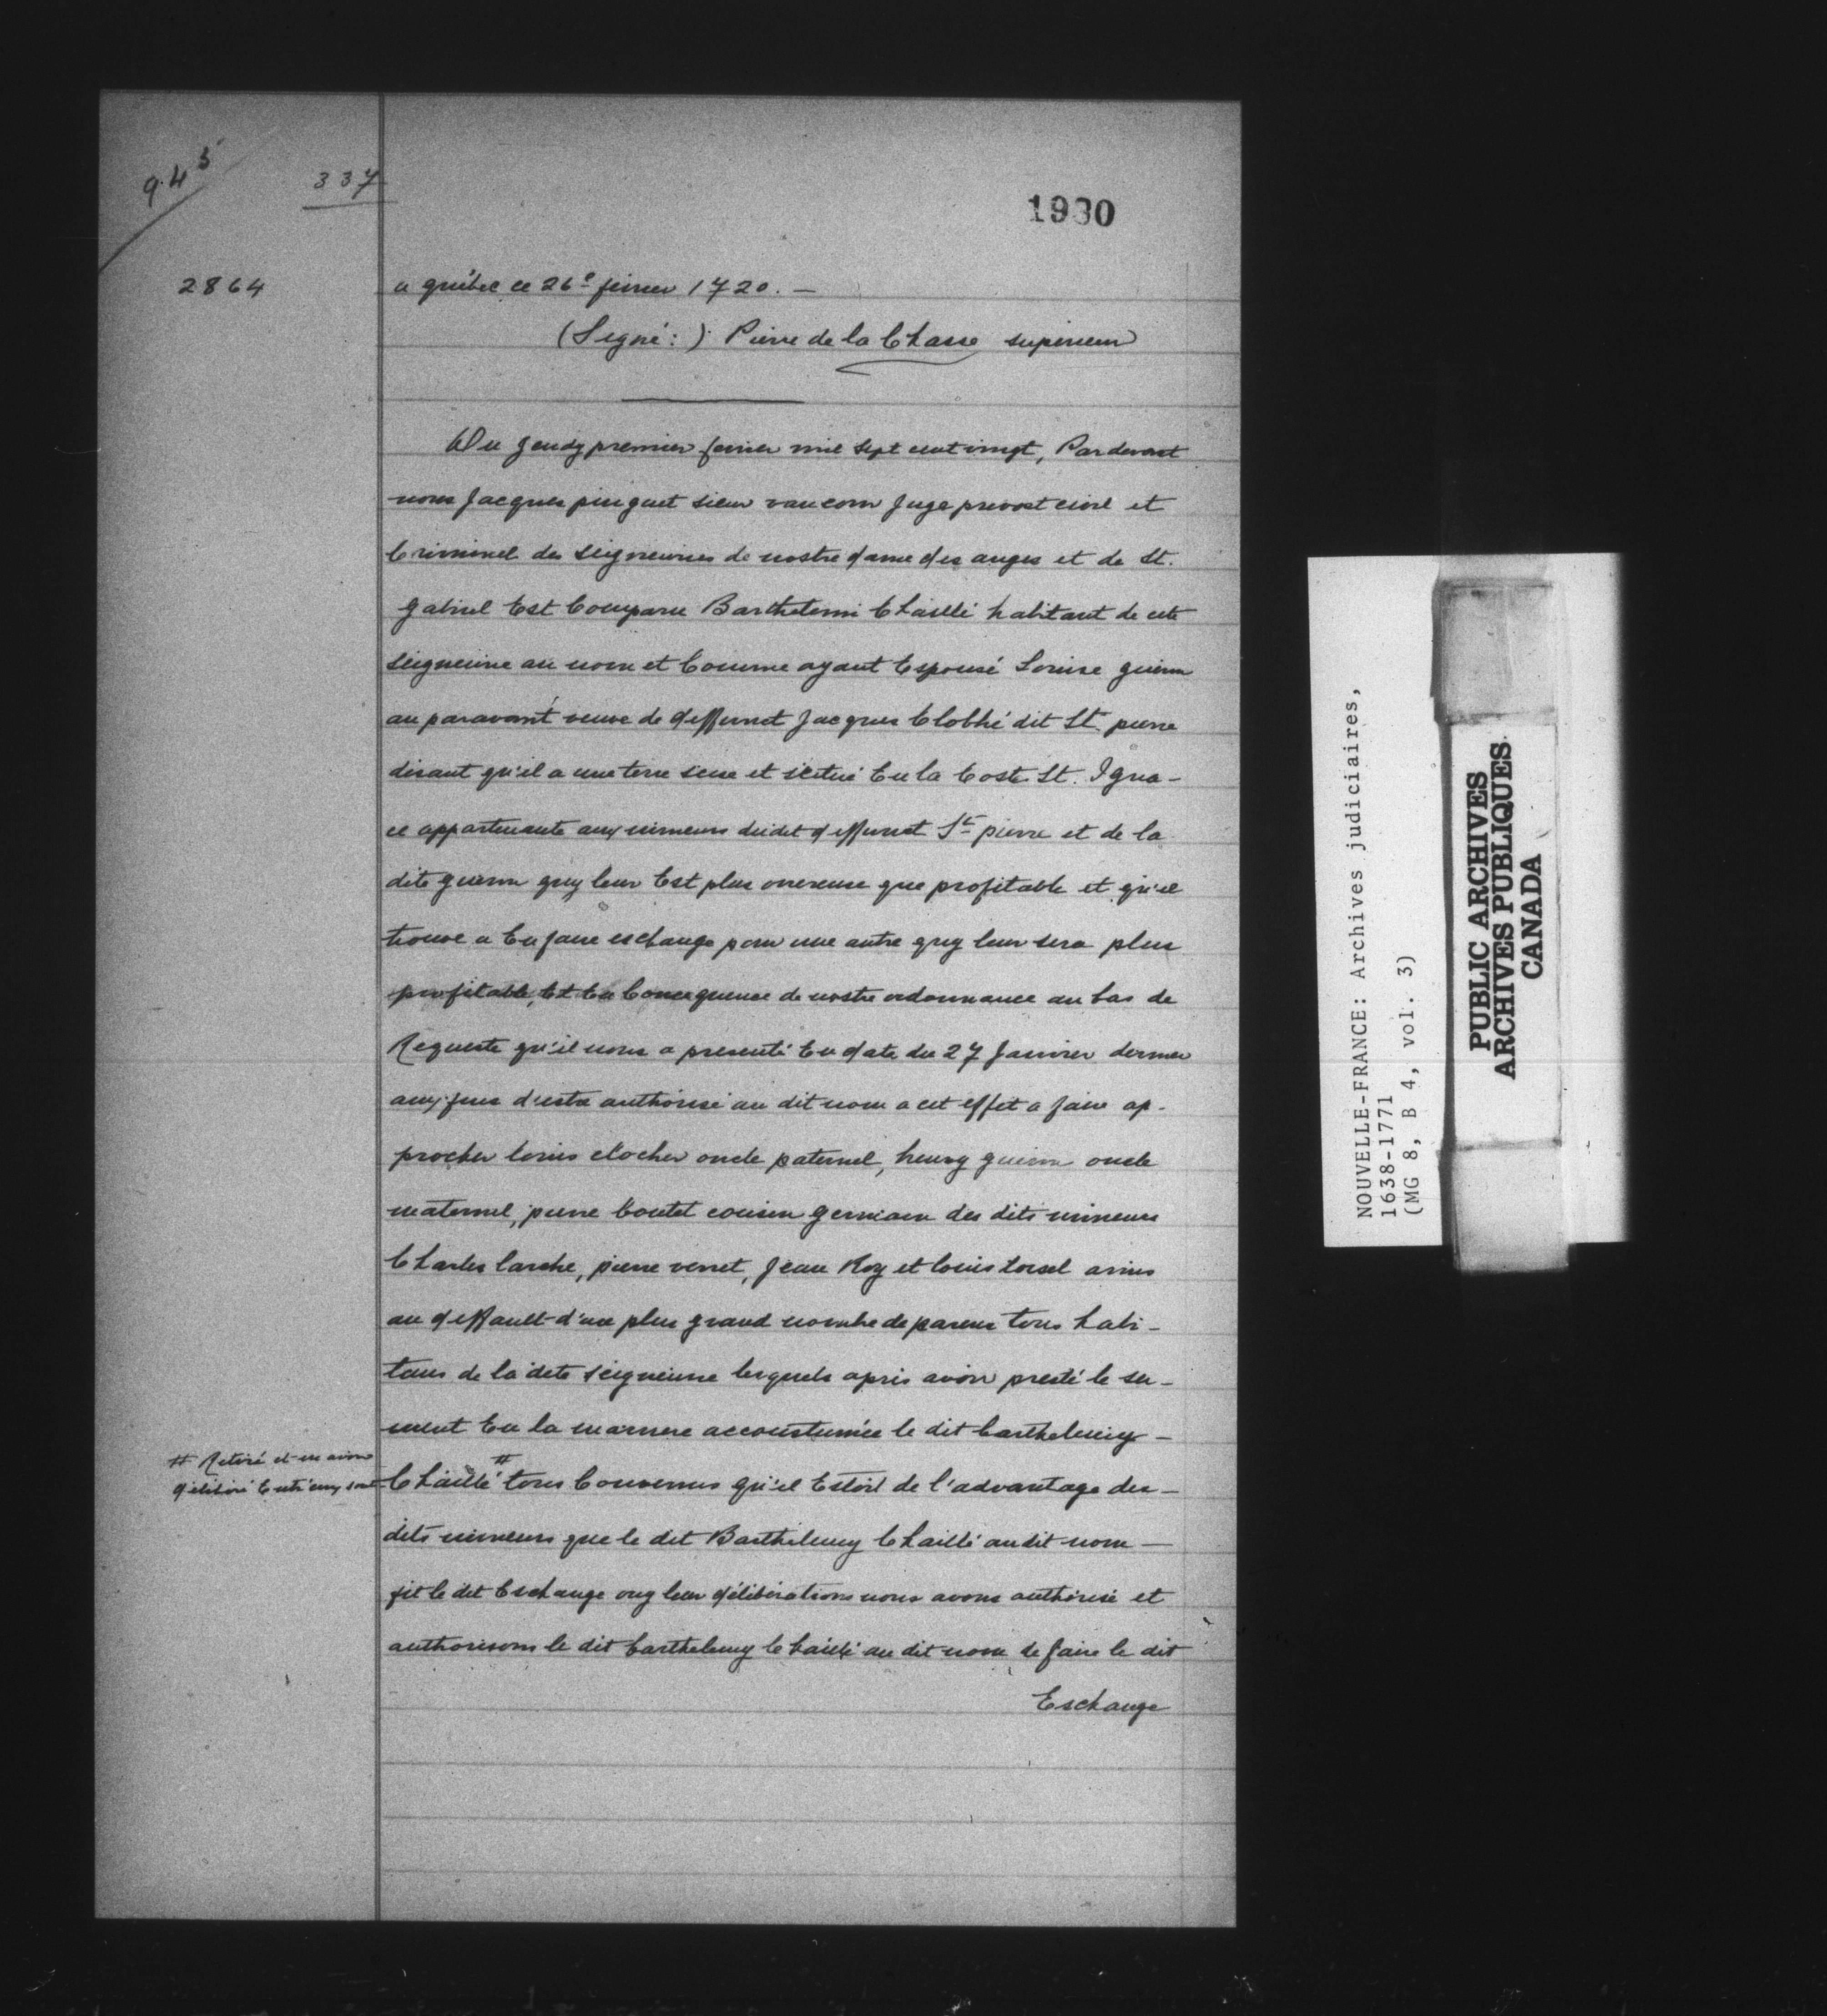 9.4 5
337
1930
2864
a québec ce 26e fevrier 1720. —
(Signé:) Pierre de la Chasse superieur
Du Jeudy premier fevrier mil sept cent vingt, Pardevant
nous Jacques pinguet sieur vaucour Juge prevost civil et
Criminel des seigneuries de nostre dame des anges et de St.
gabriel Est Comparu Barthelemi Chaillé habitant de cete
seigneurie au nom et Comme ayant Espousé Louise guerin
au paravant veuve de deffunct Jacques Clobhé dit St. pierre
disant qu'il a une terre sise et scitué En la Coste St. Igna-
ce appartenante aux mineurs dudit deffunct St pierre et de la
dite guerin quy leur Est plus onereuse que profitable et qu'il
trouve a En faire eschange pour une autre quy leur sera plus
profitable, Et En Consequence de nostre ordonnance au bas de
Requeste qu'il nous a presenté En date du 27 Janvier dernier
aux fins d'estre authorisé au dit nom a cet effet a faire ap-
procher louis clocher oncle paternel, henry guerin oncle
maternel, pierre boutet cousin germain des dits mineurs
Charles larche, pierre verret, Jean Roy et louis loisel amis
au deffault d'un plus grand nombre de parens tous habi-
tans de la dite seigneurie lesquels apres avoir presté le ser-
ment En la maniere accoustumée le dit barthelemy —
# Retiré et en avoir
délibéré Entr'eux sont
Chaillé # tous Convenus qu'il Estoit de l'advantage des —
dits mineurs que le dit Barthelemy Chaillé audit nom —
fit le dit Eschange ouy leur délibérations nous avons authorisé et
authorisons le dit barthelemy Chaillé au dit nom de faire le dit
Eschange
NOUVELLE-FRANCE: Archives judiciaires,
1638-1771
(MG 8, B 4, vol. 3)
PUBLIC ARCHIVES
ARCHIVES PUBLIQUES
CANADA